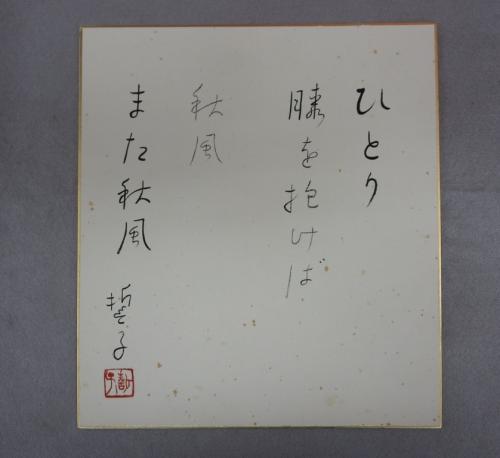 ひとり
膝を抱けば
秋風
また秋風
哲子